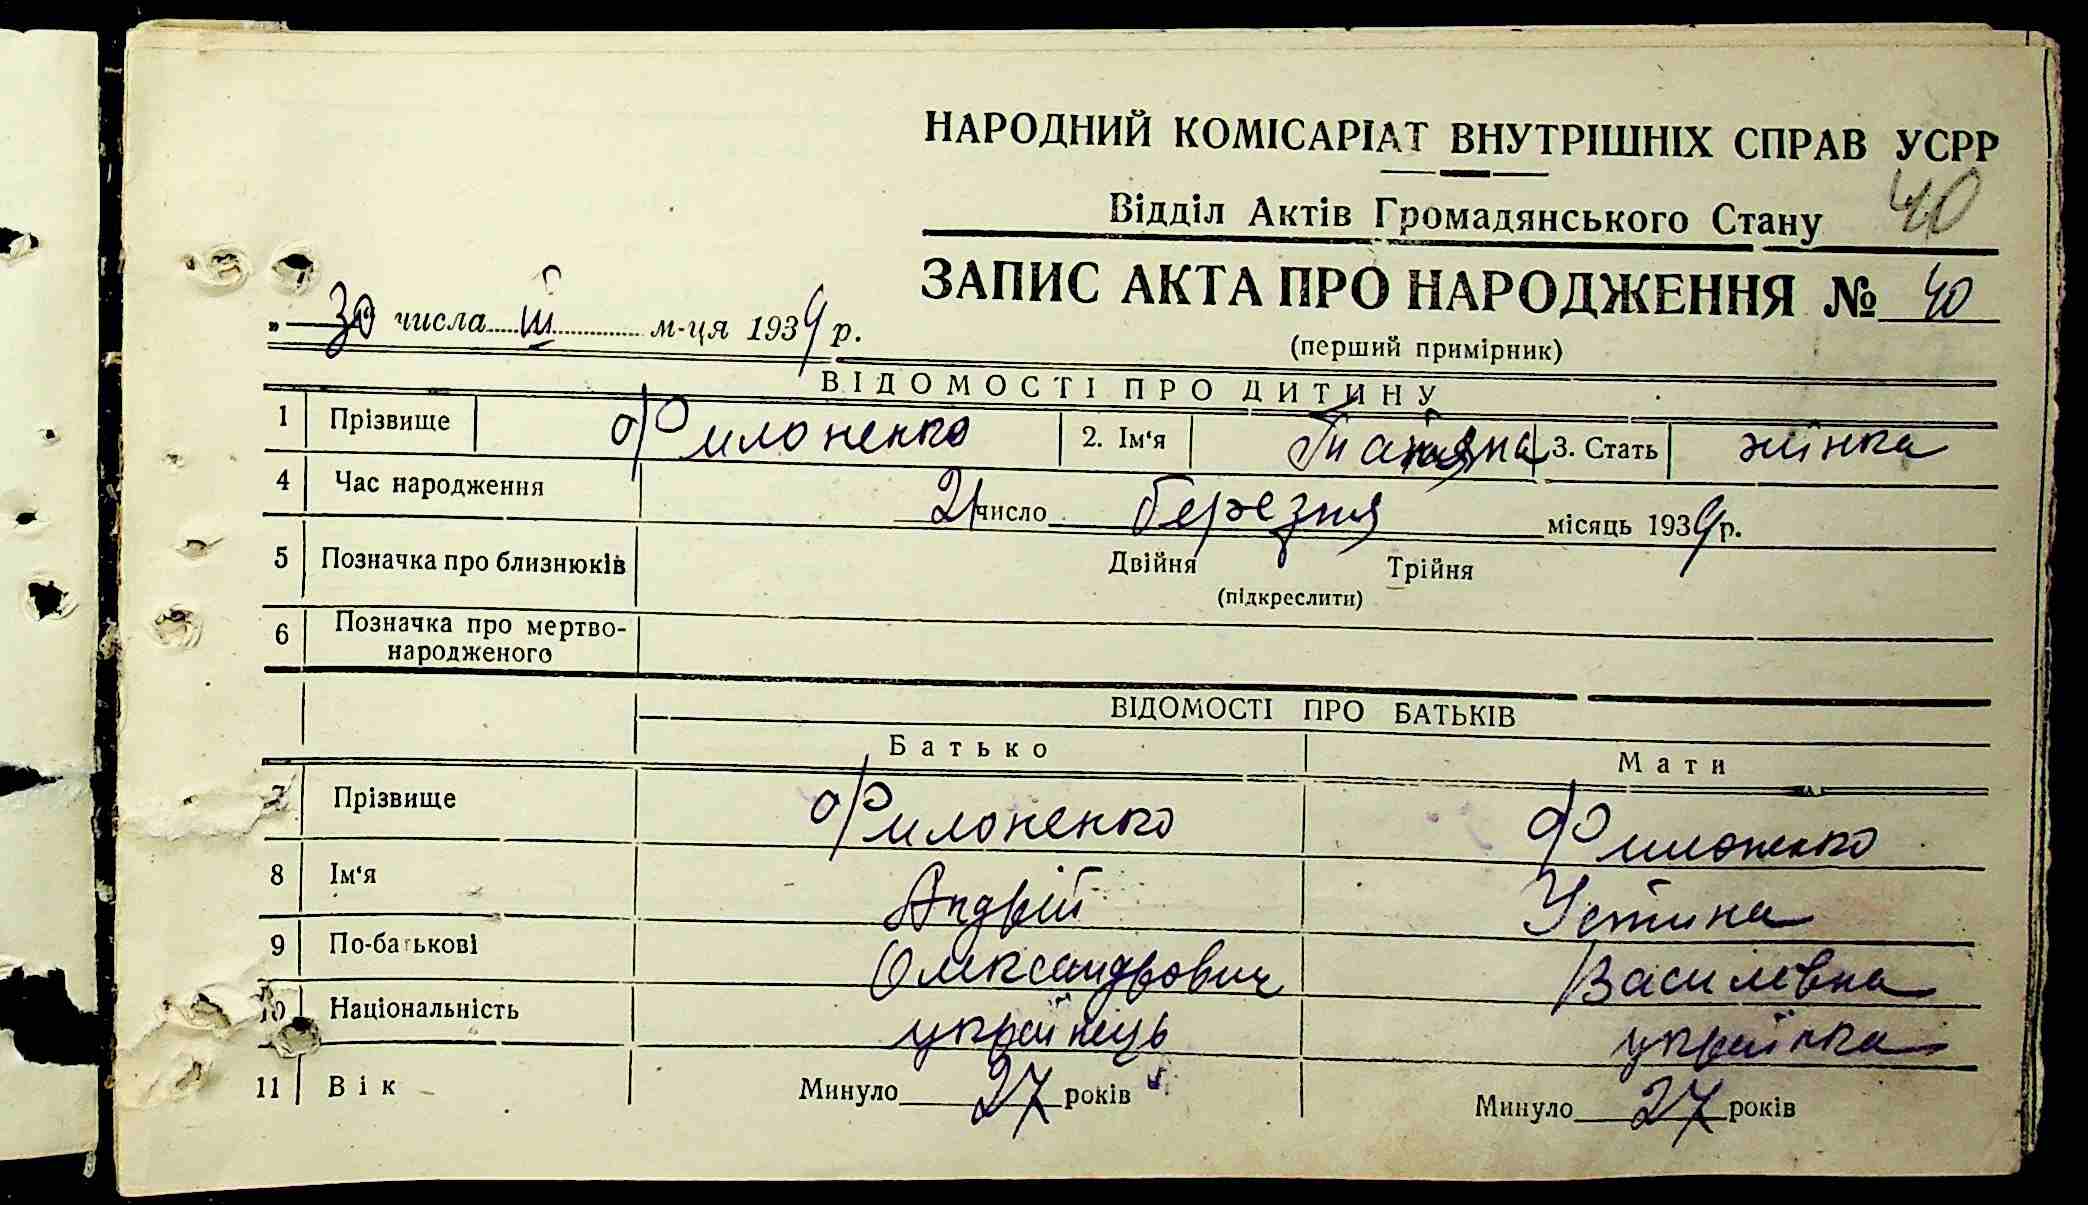 НАРОДНИЙ КОМІСАРІАТ ВНУТРІШНІХ СПРАВ УСРР
Відділ Актів Громадянського Стану 40
ЗАПИС АКТА ПРО НАРОДЖЕННЯ № 40
„ 30 числа ІІІ м-ця 1934 р.
(перший примірник)
ВІДОМОСТІ ПРО ДИТИНУ
1 Прізвище Филоненко 2. Ім‘я Татяна 3. Стать жінка
4 Час народження 21 число березня місяць 1934 р.
5 Позначка про близнюків Двійня Трійня
(підкреслити)
6 Позначка про мертво-
народженого
ВІДОМОСТІ ПРО БАТЬКІВ
Батько Мати
7 Прізвище Филоненко Филоненко
8 Ім‘я Андрій Устина
9 По-батькові Олександрович Василівна
10 Національність українець українка
11 Вік Минуло 27 років Минуло 27 років